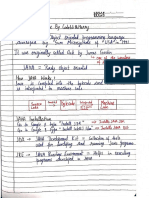 Java By Lakshit Mittal
Object Oriented programming language
developed by "Sun Microsystems" of "USA" in 1991
It was originally called Oak by James Gosslin
one of the inventor
JAVA = Purely Object Oriented
How JAVA Works ?
Java is compiled into the bytecode and
is interpreted to machine code.
Source Code
Byte code
Machine Code
JAVA Installation
Go to Google & type "Install JDK" → Installs JAVA JDK
Go to Google & type "Install
JDK → JAVA Development Kit = Collection of tools
used for developing and running java
programs
JRE → JAVA Runtime Environment = Helps in executing
programs developed in JAVA